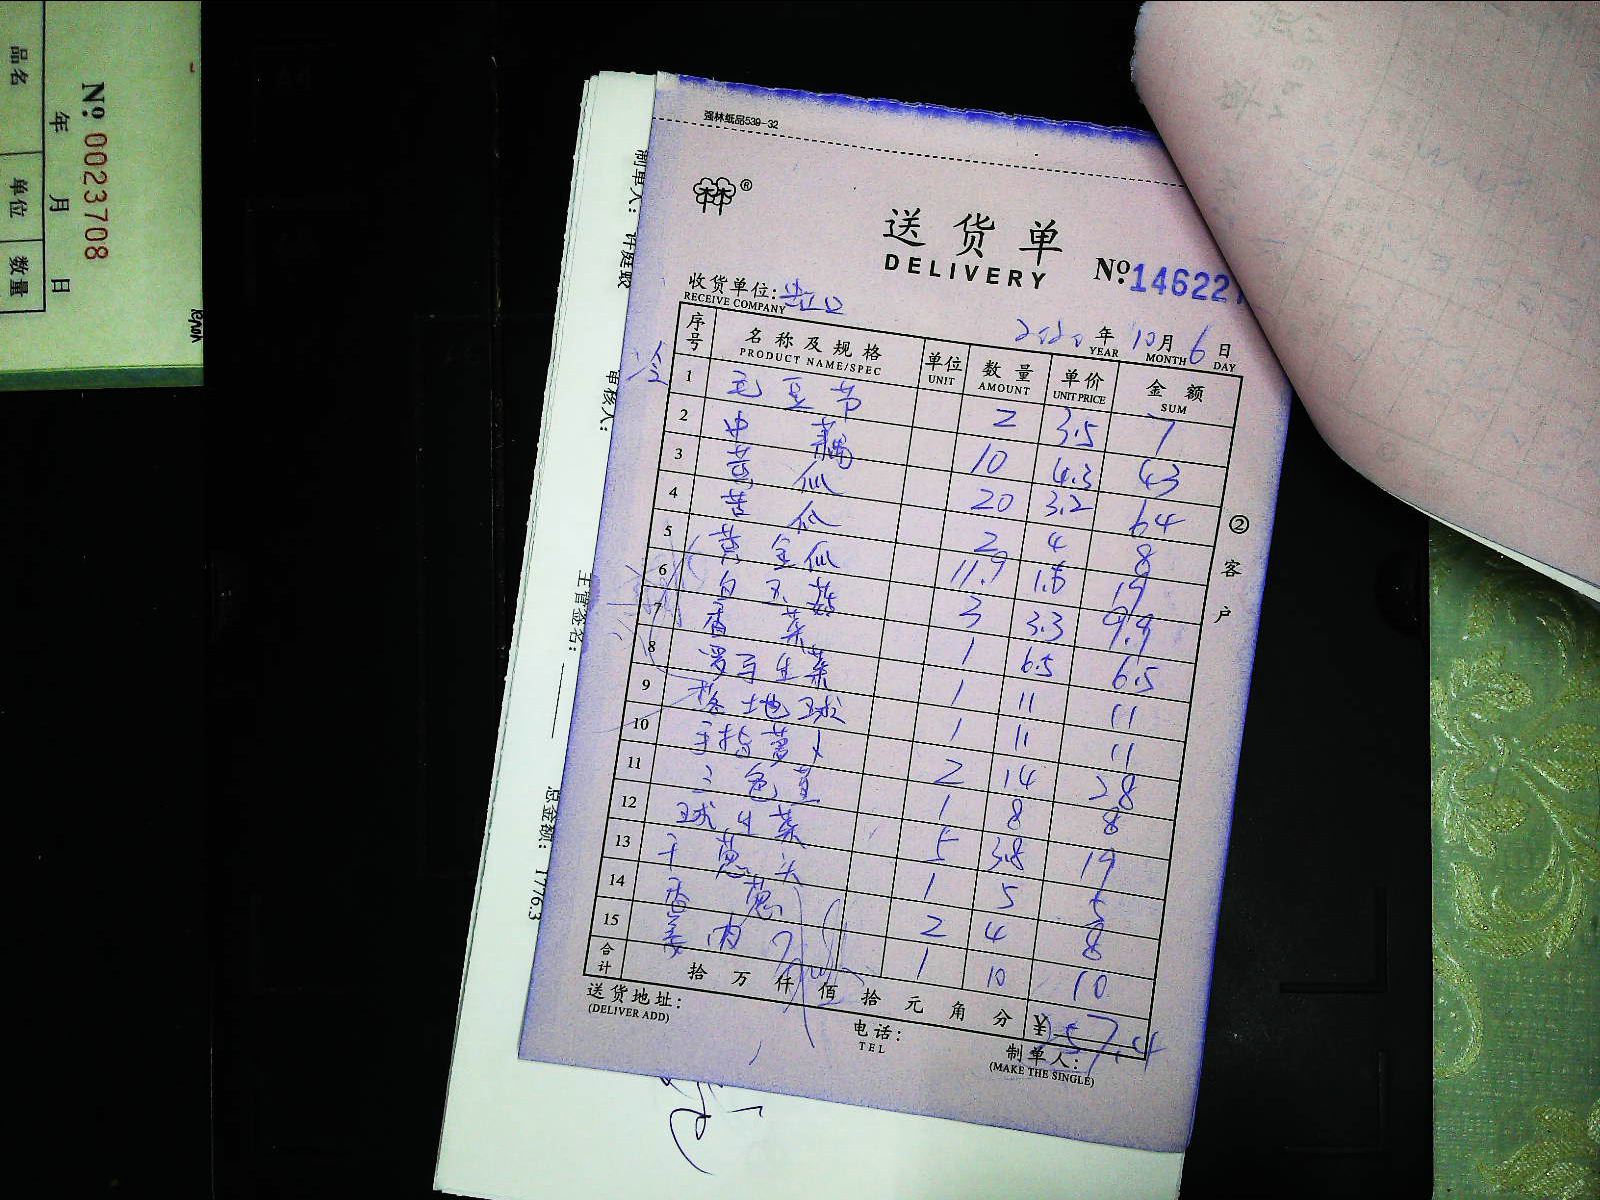 品名
单位
数量
年 月 日
No. 0023708
制单人:
审核人:
主管签名:
总金额: 1776.3
强林纸品539-32
®
送货单
DELIVERY
No. 146227
收货单位:
RECEIVE COMPANY
2020 年 10 月 6 日
YEAR MONTH DAY
序号 名称及规格 单位 数量 单价 金额
PRODUCT NAME/SPEC UNIT AMOUNT UNIT PRICE SUM
冷
1 毛豆节 2 3.5 7
2 中藕 10 4.3 43
3 黄瓜 20 3.2 64
4 苦瓜 2 4 8
5 黄金瓜 11.9 1.6 19
6 白玉菇 3 3.3 9.9
7 香菜 1 6.5 6.5
8 罗马生菜 1 11 11
9 格地球 1 11 11
10 手指萝卜 2 14 28
11 三色堇 1 8 8
12 球生菜 5 3.8 19
13 干葱头 1 5 5
14 香葱 2 4 8
15 姜肉 1 10 10
合计 拾 万 仟 佰 拾 元 角 分 ¥257.4
送货地址:
(DELIVER ADD)
电话:
TEL
制单人:
(MAKE THE SINGLE)
② 客户